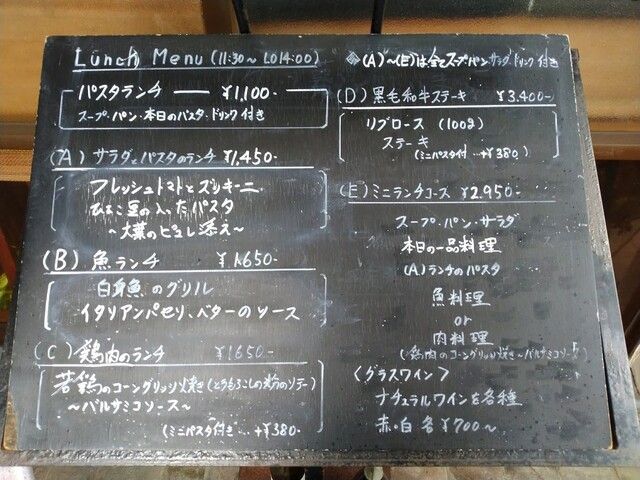 Lunch Menu (11:30～L.O14:00)
パスタランチ — ¥1,100-
スープ・パン・本日のパスタ・ドリンク付き
(A) サラダとパスタのランチ ¥1,450-
フレッシュトマトとズッキーニ
ひよこ豆の入ったパスタ
～大葉のピュレ添え～
(B) 魚ランチ ¥1,650-
白身魚のグリル
イタリアンパセリ、バターのソース
(C) 鶏肉のランチ ¥1650-
若鶏のコーングリッツ焼き(とうもろこしの粉のソテー)
～バルサミコソース～
(ミニパスタ付き…+¥380)
◈(A)～(E)は全てスープ・パン・サラダ・ドリンク付き
(D) 黒毛和牛ステーキ ¥3,400-
リブロース (100g)
ステーキ
(ミニパスタ付…+¥380)
(E) ミニランチコース ¥2,950-
スープ・パン・サラダ
本日の一品料理
(A)ランチのパスタ
魚料理
or
肉料理
(鶏肉のコーングリッツ焼き～バルサミコソース)
〈グラスワイン〉
ナチュラルワインを各種
赤・白 各¥700～